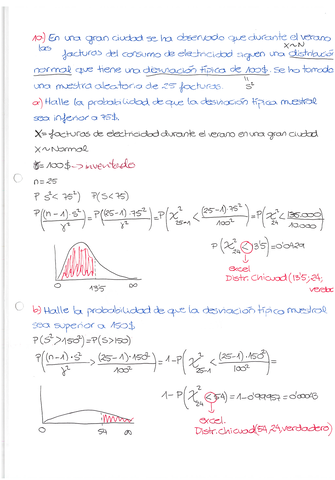 10) En una gran ciudad se ha observado que durante el verano
las facturas del consumo de electricidad siguen una distribución X~N
normal que tiene una desviación típica de 100$. Se ha tomado
una muestra aleatoria de 25 facturas. S²
a) Halle la probabilidad de que la desviación típica muestral
sea inferior a 75$.
X = facturas de electricidad durante el verano en una gran ciudad
X ~ Normal
= 100$ → inventado
n = 25
P(S² < 75²) P(S < 75)
P((n-1)·S²/γ² = P((25-1)·75²/γ²) = P(χ²25-1 < (25-1)·75²/100²) = P(χ²24 < 135.000/10.000
P(χ²24 < 13'5) = 0'0429
excel
Distr. Chicuad(13'5; 24;
verdad
13'5 ∞
b) Halle la probabilidad de que la desviación típica muestral
sea superior a 150$.
P(S² > 150²) = P(S > 150)
P((n-1)·S²/γ² > (25-1)·150²/100²) = 1-P(χ²25-1 < (25-1)·150²/100²) =
1-P(χ²24 < 54) = 1-0'99957 = 0'00043
0 54 ∞
excel.
Distr. Chicuad(54, 24, verdadero)